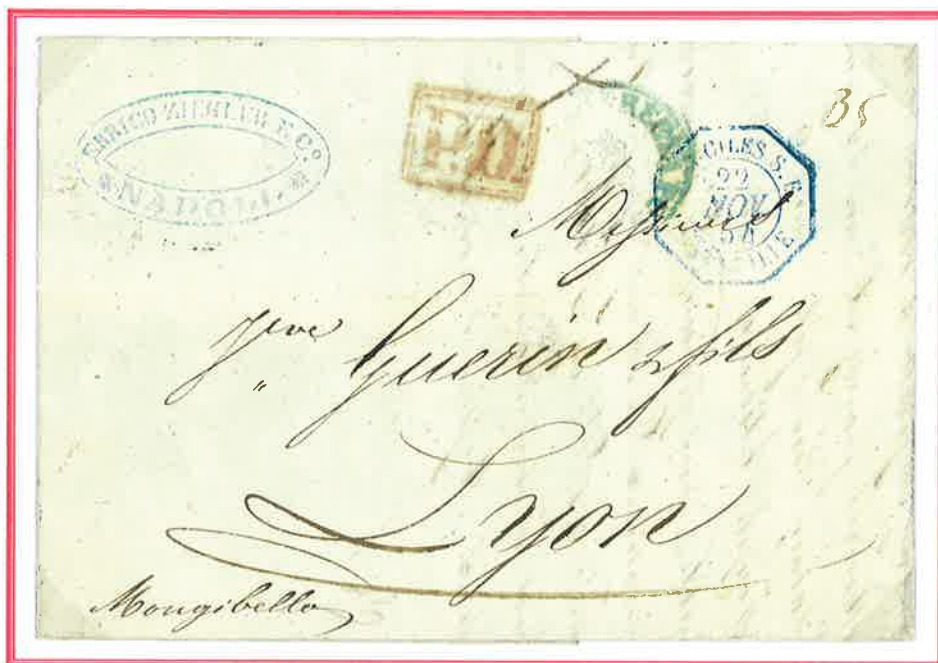 ENRICO ZIEGLER E Cº
NAPOLI
P.D.
35
22
AOU
Messieurs
Vve Guerin & fils
Lyon
Mongibello